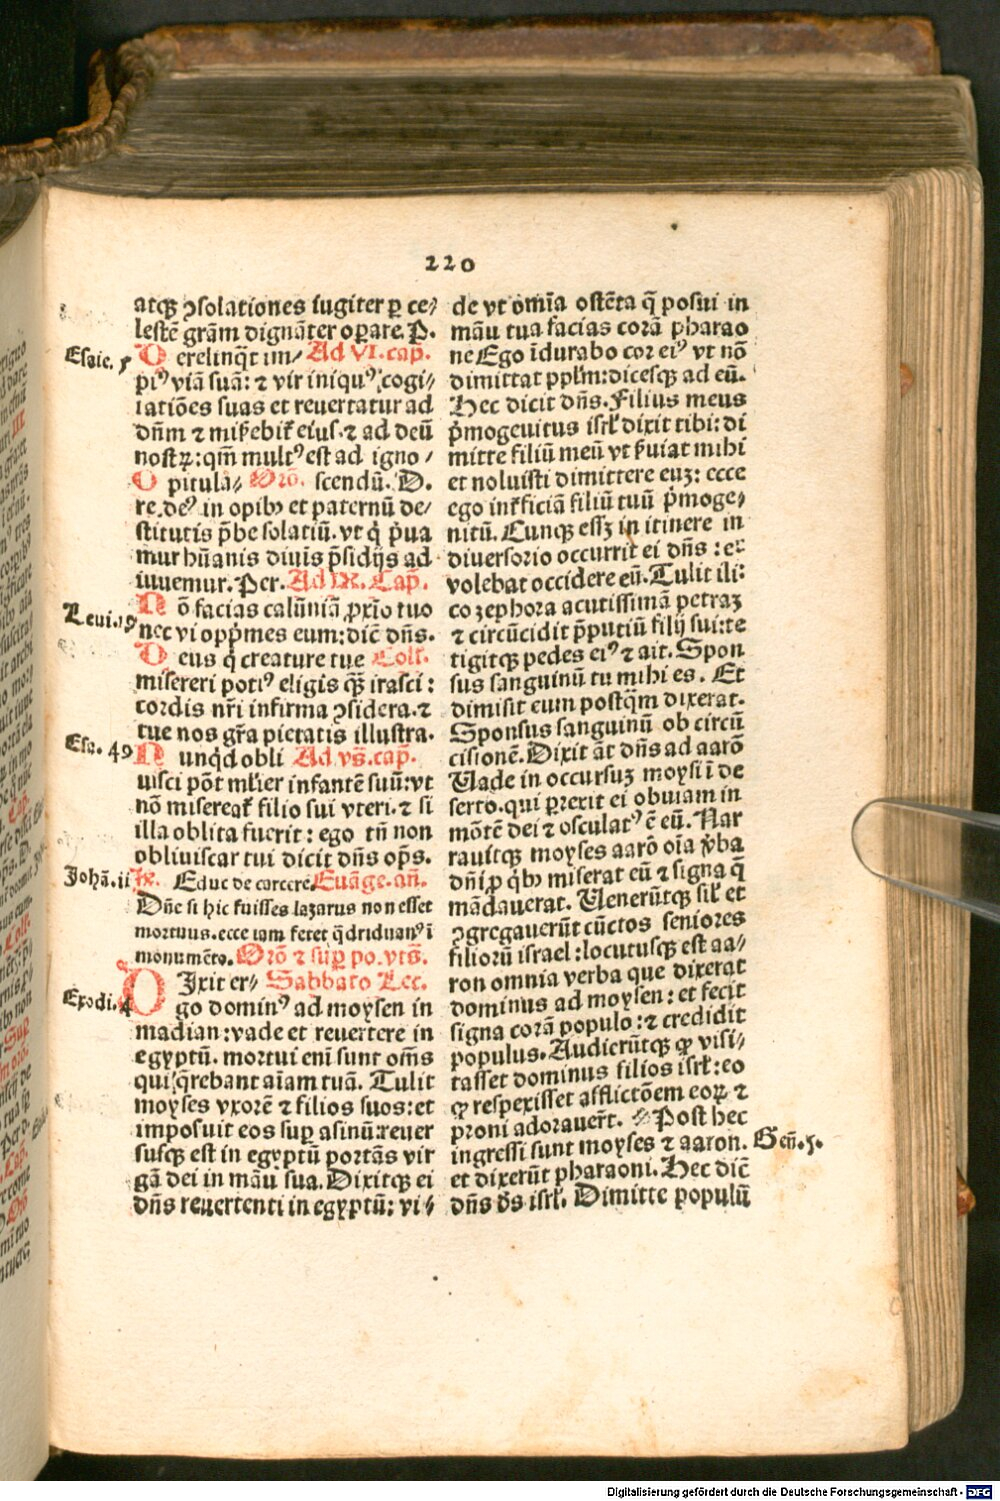 220
atqꝫ ↄsolationes iugiter ꝑ ce⸗
lestē grām dignāter oꝑare. P.
Esaie. 5
D erelinq̄t im⸗ Ad VI. cap̄.
piꝰ viā suā: ⁊ vir iniquꝰ cogi⸗
tatiōes suas et reuertatur ad
dn̄m ⁊ miẜebiť eius. ⁊ ad deū
nostꝝ: qm̄ multꝰ est ad igno⸗
O pitula⸗ Orō. scendū. D.
re. deꝰ in opibꝰ et paternū de⸗
stitutis p̄be solatiū. vt q̇ p̄ua
mur hūanis diuīs p̄sidijs ad
iuuemur. Per. Ad IX. Cap̄.
Leui. 19
N ō facias calūniā ꝓxīo tuo
nec vi opp̄mes eum: dic̄ dn̄s.
D eus q̇ creature tue Coll.
misereri potiꝰ eligis qꝫ̄ irasci:
cordis nr̄i infirma ↄsidera. ⁊
tue nos gr̄a pietatis illustra.
Esa. 49
N unqd̄ obli Ad vs̄. cap̄.
uisci pōt mľier infantē suū: vt
nō misereať filio sui vteri. ⁊ si
illa oblita fuerit: ego tn̄ non
obliuiscar tui dicit dn̄s op̄s.
Johā. ii
℟. Educ de carcere. Euāge. an̄.
Dn̄e si hic fuisses lazarus non esset
mortuus. ecce iam fetet q̄driduanꝰ ī
monumēto. Orō ⁊ suꝑ po. vts̄.
Exodi. 4
D Jxit er⸗ Sabbato Lec.
go dominꝰ ad moysen in
madian: vade et reuertere in
egyptū. mortui enī sunt om̄s
qui q̄rebant aīam tuā. Tulit
moyses vxorē ⁊ filios suos: et
imposuit eos suꝑ asinū: reuer
susqꝫ est in egyptū portās vir
gā dei in māu sua. Dixitqꝫ ei
dn̄s reuertenti in egyptū: vi⸗
de vt om̄ia ostēta q̄ posui in
māu tua facias corā pharao
ne Ego īdurabo cor eiꝰ vt nō
dimittat ppľm: dicesqꝫ ad eū.
Hec dicit dn̄s. Filius meus
p̄mogeuitus isrľ dixit tibi: di
mitte filiū meū vt ẜuiat mihi
et noluisti dimittere euꝫ: ecce
ego inťficiā filiū tuū p̄moge⸗
nitū. Cunqꝫ essꝫ in itinere in
diuersorio occurrit ei dn̄s: et
volebat occidere eū. Tulit ili⸗
co zephora acutissimā petraꝫ
⁊ circūcidit p̄putiū filij sui: te
tigitqꝫ pedes eiꝰ ⁊ ait. Spon
sus sanguinū tu mihi es. Et
dimisit eum postq̄m dixerat.
Sponsus sanguinū ob circū
cisionē. Dixit āt dn̄s ad aarō
Uade in occursuꝫ moysi ī de
serto. qui ꝑrexit ei obuiam in
mōtē dei ⁊ osculatꝰ ē eū. Nar
rauitqꝫ moyses aarō oīa ꝟba
dn̄i ꝓ q̇bꝰ miserat eū ⁊ signa q̄
mādauerat. Uenerūtqꝫ siľ et
ↄgregauerūt cūctos seniores
filiorū israel: locutusqꝫ est aa⸗
ron omnia verba que dixerat
dominus ad moysen: et fecit
signa corā populo: ⁊ credidit
populus. Audierūtqꝫ ꝙ visi⸗
tasset dominus filios isrľ: eo
ꝙ respexisset afflictōem eoꝝ ⁊
proni adorauer̄t. Post hec
ingressi sunt moyses ⁊ aaron. Gen̄. 5.
et dixerūt pharaoni. Hec dic̄
dn̄s d̄s isrľ. Dimitte populū
Digitalisierung gefördert durch die Deutsche Forschungsgemeinschaft - DFG